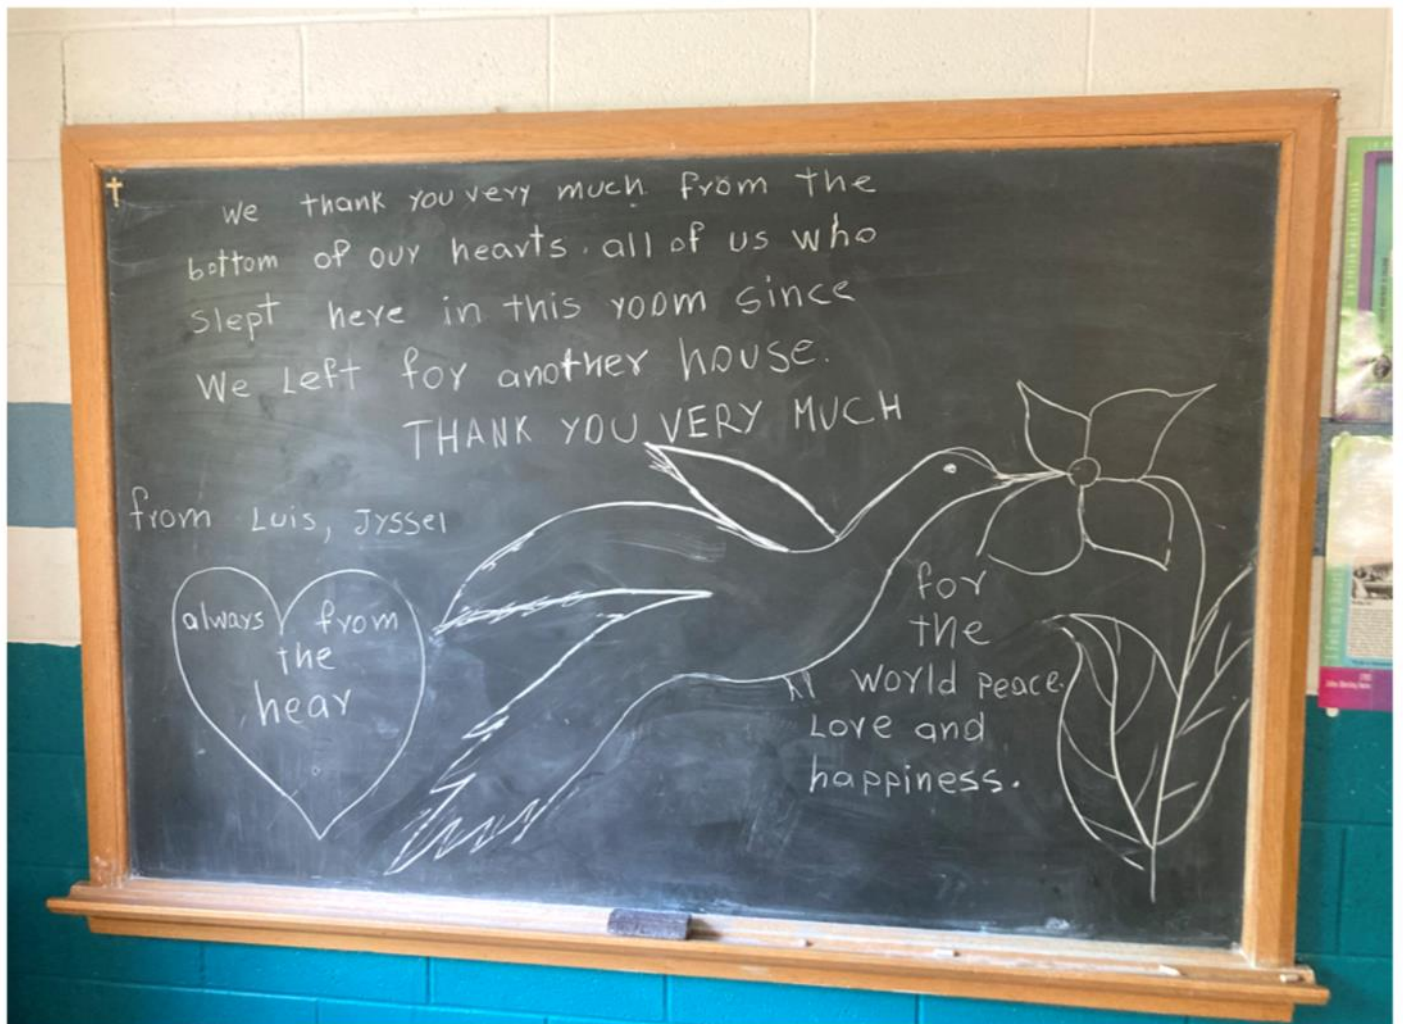 We thank you very much from the
bottom of our hearts. all of us who
slept here in this room since
We Left for another house.
THANK YOU VERY MUCH
from Luis, Jyssel
always from
the
hear
for
the
world peace.
Love and
happiness.